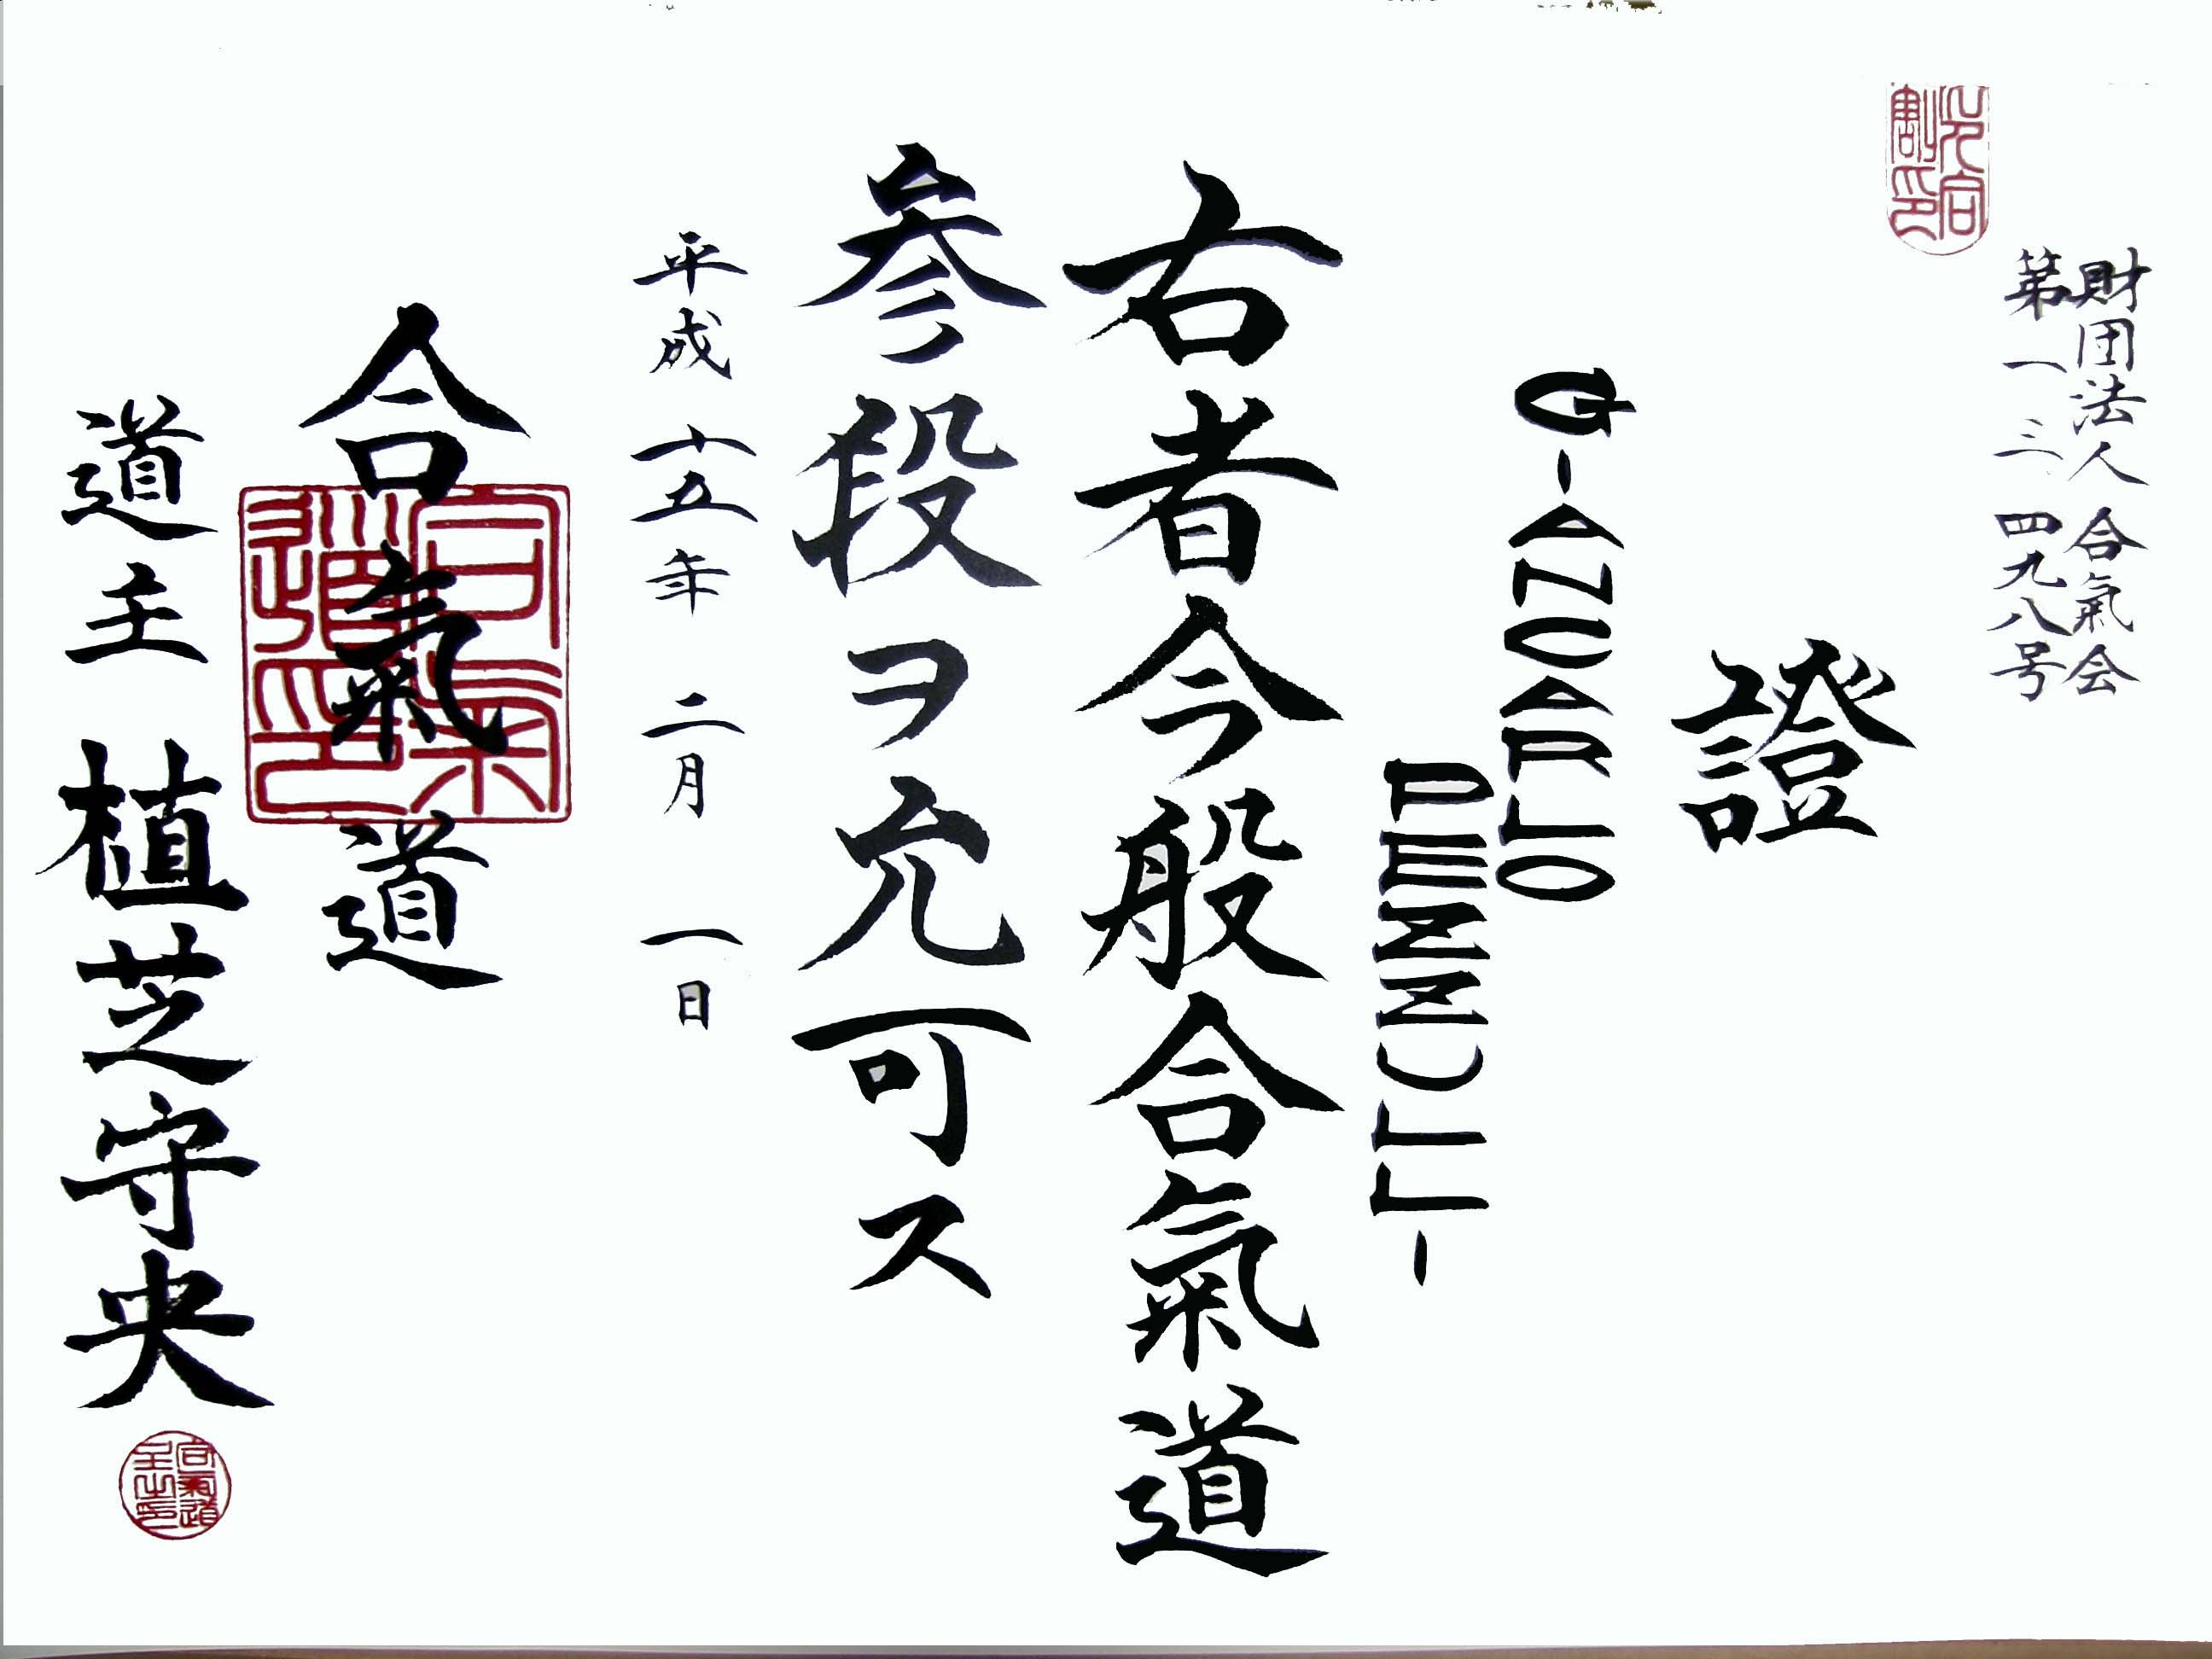 財団法人 合氣会
第一三四九八号
證
GIANCARLO
PENNUTTI
右者今般合氣道
参段ヲ允可ス
平成 十五年 二月 一日
合氣道
合氣道印
道主 植芝守央
合氣道主之印